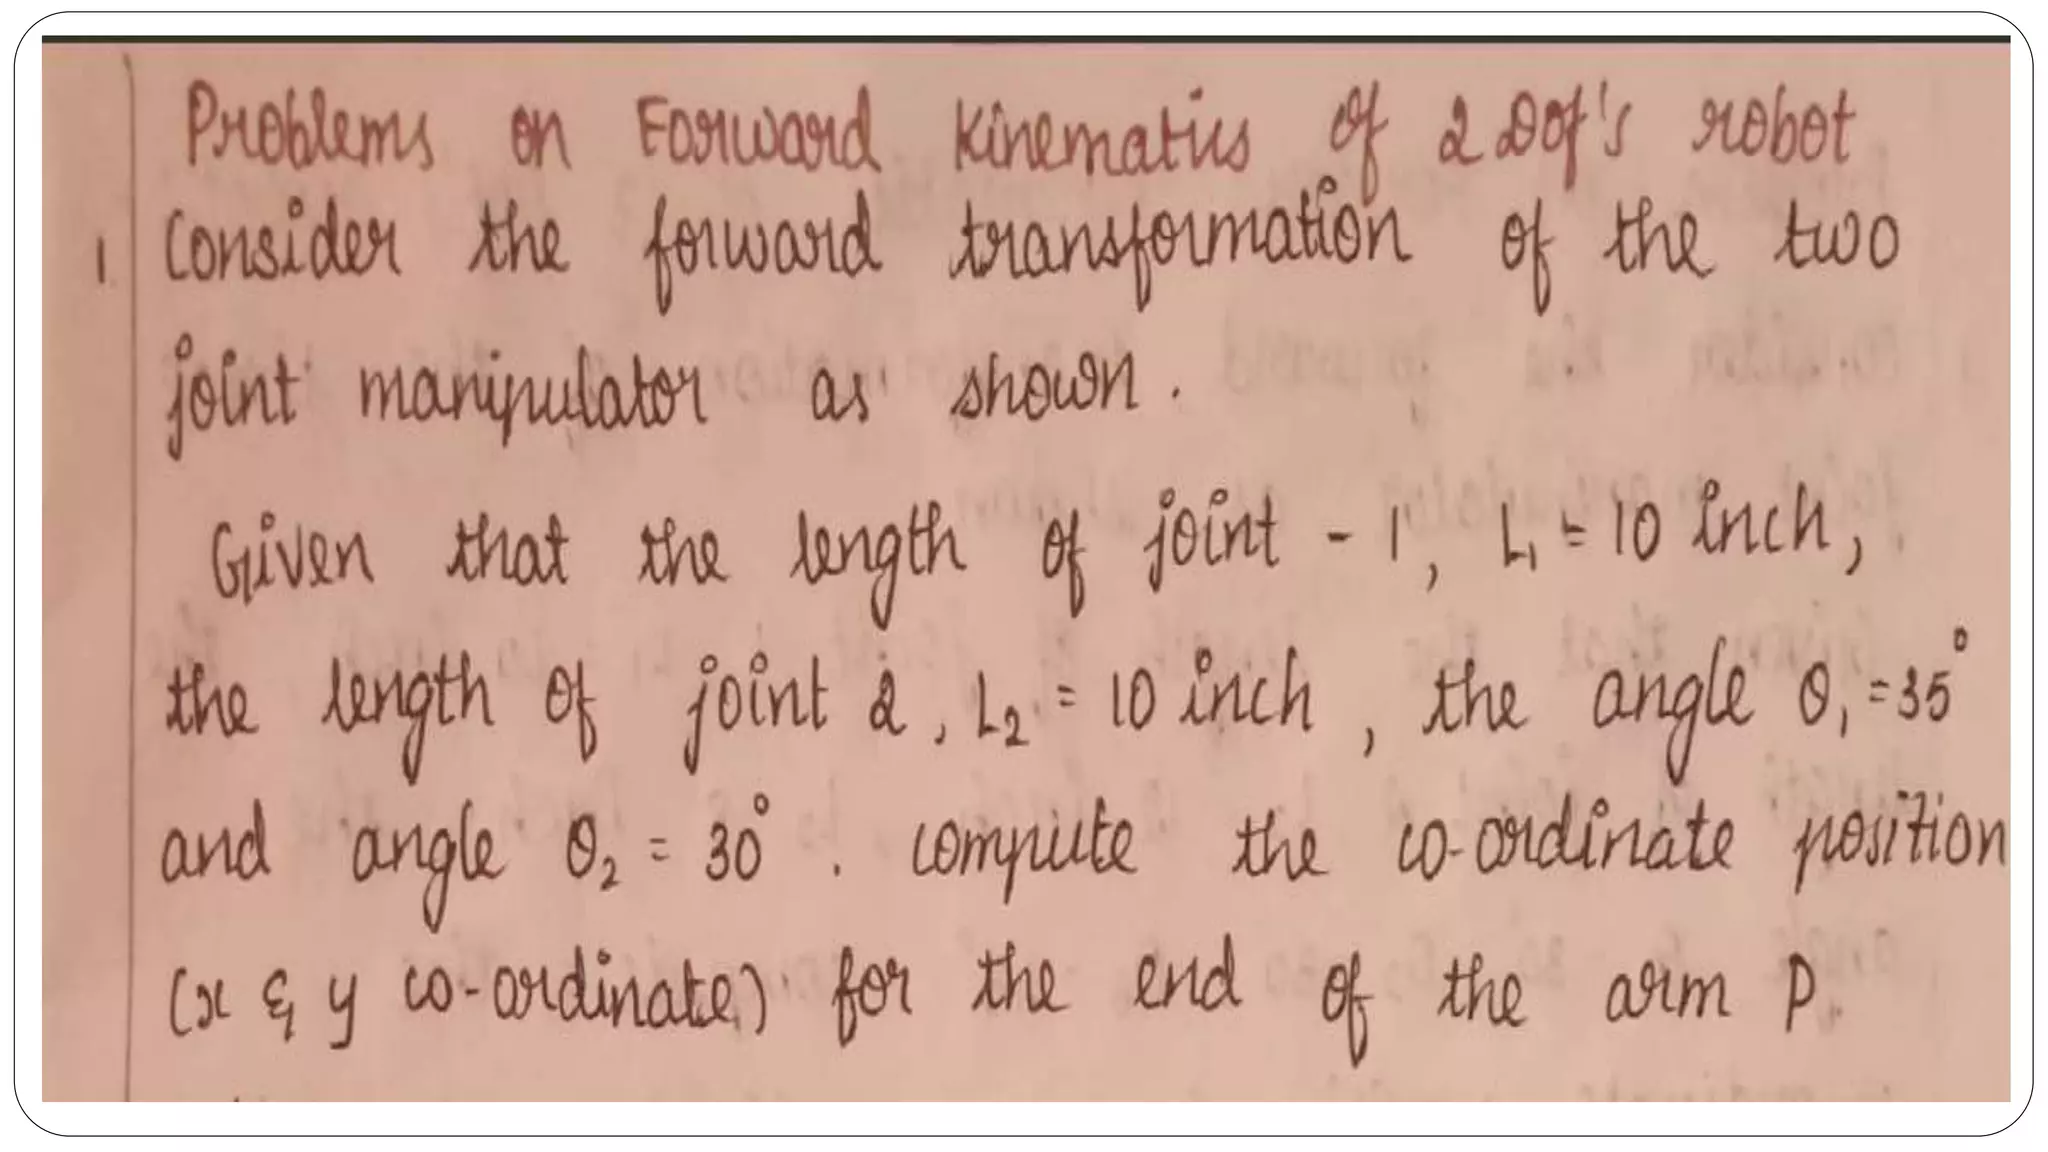 Problems on Forward Kinematics of 2 Dof's robot
1. Consider the forward transformation of the two
joint manipulator as shown.
Given that the length of joint - 1, L₁ = 10 inch,
the length of joint 2, L₂ = 10 inch, the angle θ₁ = 35°
and angle θ₂ = 30°. compute the co-ordinate position
(x & y co-ordinate) for the end of the arm P.